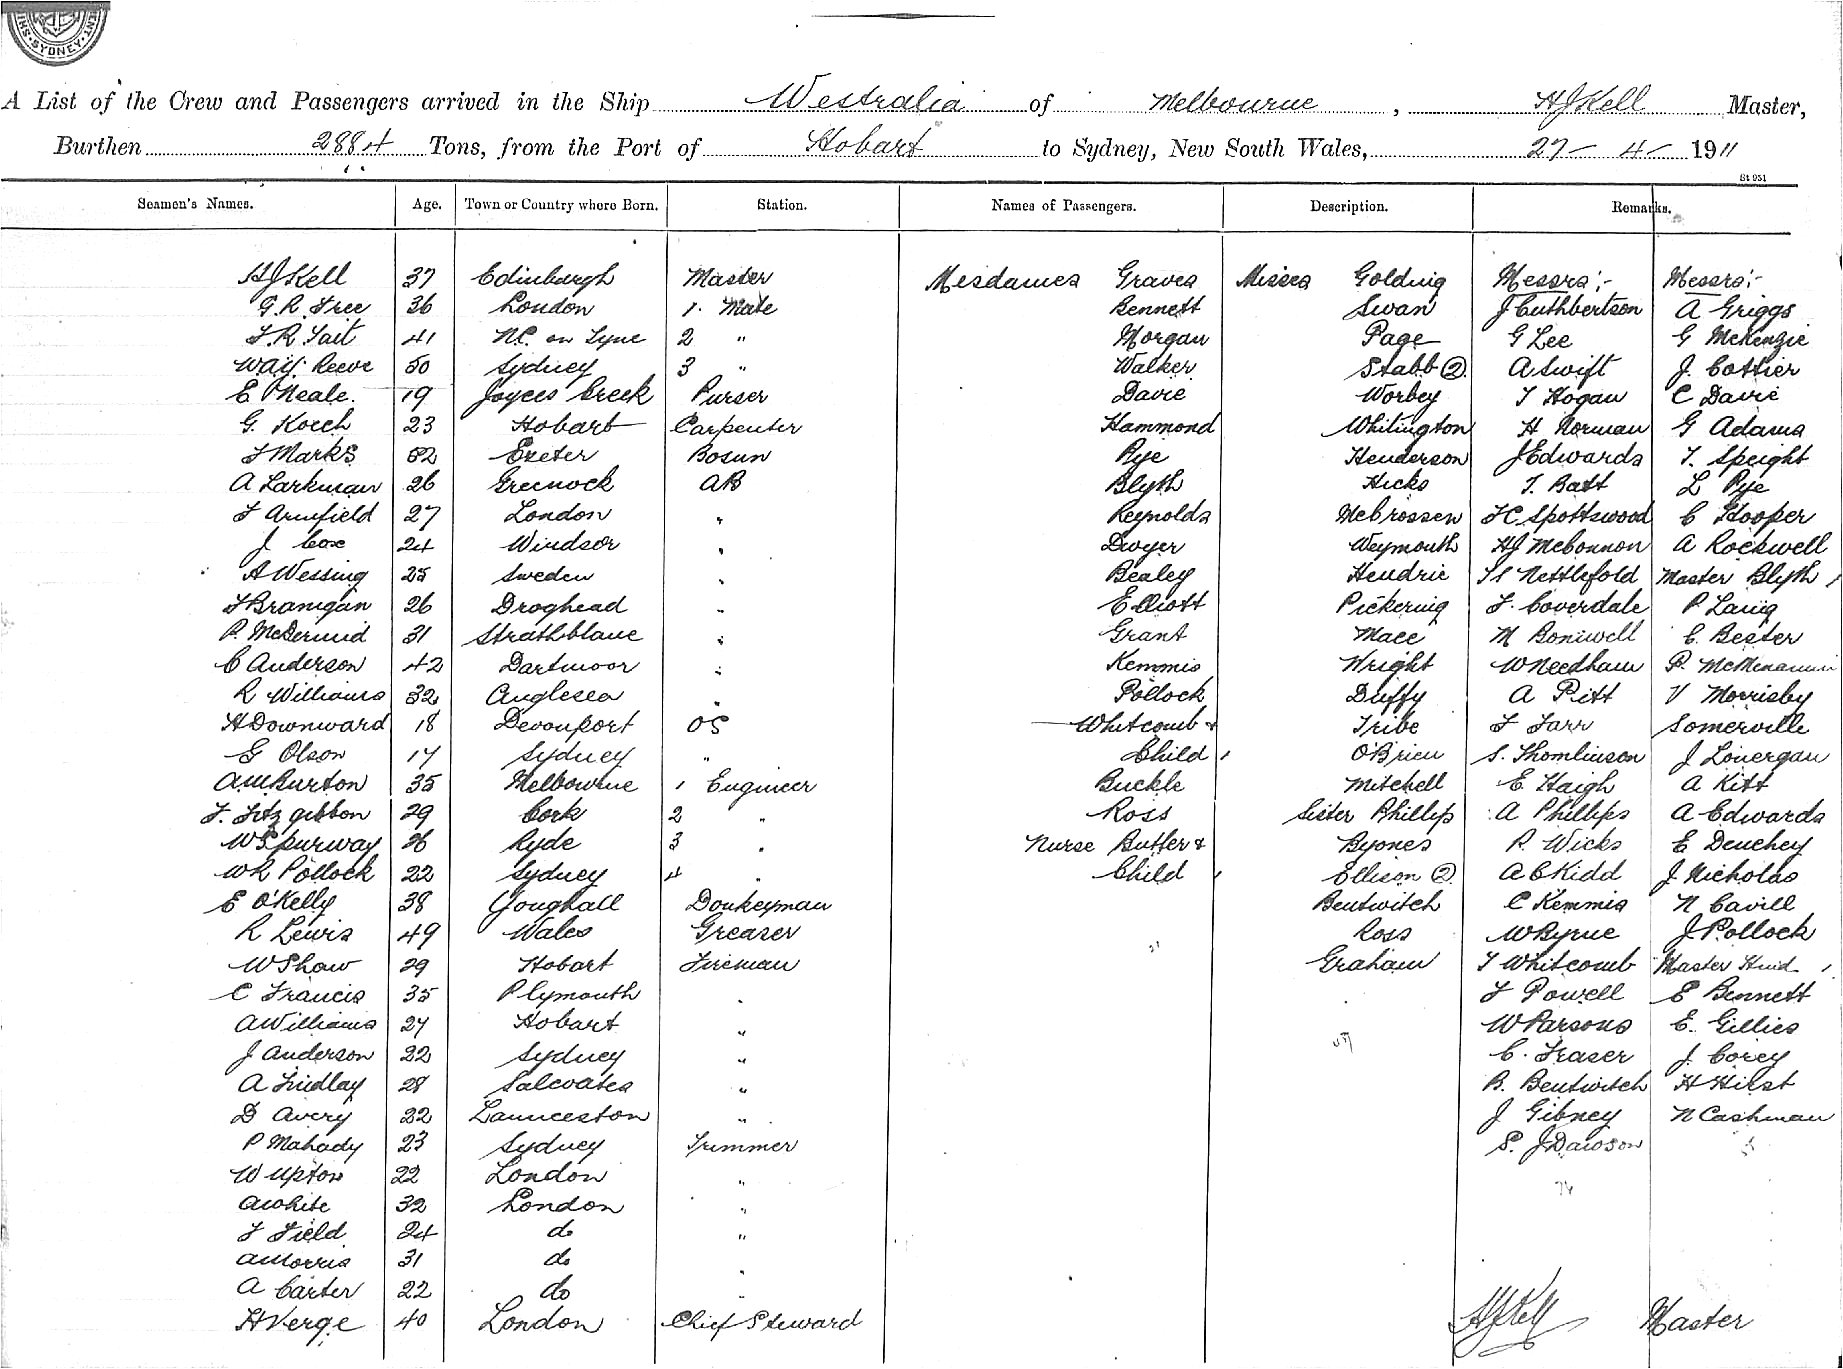 SYDNEY
A List of the Crew and Passengers arrived in the Ship Westralia of Melbourne, HJ Kell Master,
Burthen 2884 Tons, from the Port of Hobart to Sydney, New South Wales, 27 - 4 - 1911
St 951
Seamen's Names. Age. Town or Country where Born. Station. Names of Passengers. Description. Remarks.
HJ Kell 37 Edinburgh Master Mesdames Graves Misses Golding Messrs:- Messrs:-
G. R. Free 36 London 1. Mate Bennett Swan J Cuthbertson A Griggs
F. R Tait 41 N.C. on Tyne 2 " Morgan Page G Lee G McKenzie
Reeve 50 Sydney 3 " Walker Stabb ② A Swift J. Cottier
E Neale. 19 Joyces Creek Purser Davie Worbey T Hogan C Davie
G. Koch 23 Hobart Carpenter Hammond Whitington H Norman G Adams
F Marks 52 Exeter Bosun Pye Henderson J Edwards T. Speight
A Larkman 26 Greenock AB Blyth Hicks T. Batt L Pye
F Armfield 27 London " Reynolds McCrossen FC Spottswood C Hooper
J Cox 24 Windsor " Dwyer Weymouth HJ McConnon A Rockwell
A Wessing 25 Sweden " Bealey Hendric Nettlefold Master Blyth 1
F Branigan 26 Droghead " Elliott Pickering F. Coverdale P Laing
P. McDermid 31 Strathblane " Grant Mace M Boniwell C. Bester
C Anderson 42 Dartmoor " Kemmis Wright W Needham P. McMenamin
R Williams 32 Anglesea " Pollock Duffy A Pitt V Morrisby
H Downward 18 Devonport OS Whitcomb & Tribe F Farr Somerville
G Olson 17 Sydney " Child 1 O'Brien S. Thomlinson J Lonergan
AW Burton 35 Melbourne 1 Engineer Buckle Mitchell E Haigh A Kitt
F. Fitzgibbon 29 Cork 2 " Ross Sister Phillips A Phillips A Edwards
W Spurway 26 Ryde 3 " Nurse Butler & Byones R. Wicks E Denehey
WR Pollock 22 Sydney 4 " Child 1 Ellison ② A C Kidd J Nicholas
E O'Kelly 38 Youghall Donkeyman Bentwitch C Kemmis N Cavill
R Lewis 49 Wales Greaser Ross W Byrne J Pollock
W Shaw 29 Hobart Fireman Graham T Whitcomb Master 1
C Francis 35 Plymouth " F Powell E Bennett
A Williams 27 Hobart " W Parsons E. Gillies
J Anderson 22 Sydney " C. Fraser J. Corey
A Findlay 28 Salcoates " B. Bentwitch H Hirst
D Avery 22 Launceston " J Gibney N Cashman
P Mahady 23 Sydney Trimmer S. J Dawson
W Upton 22 London "
A White 32 London "
F Field 24 do "
A Morris 31 do "
A Carter 22 do "
H Verge 40 London Chief Steward HJ Kell Master